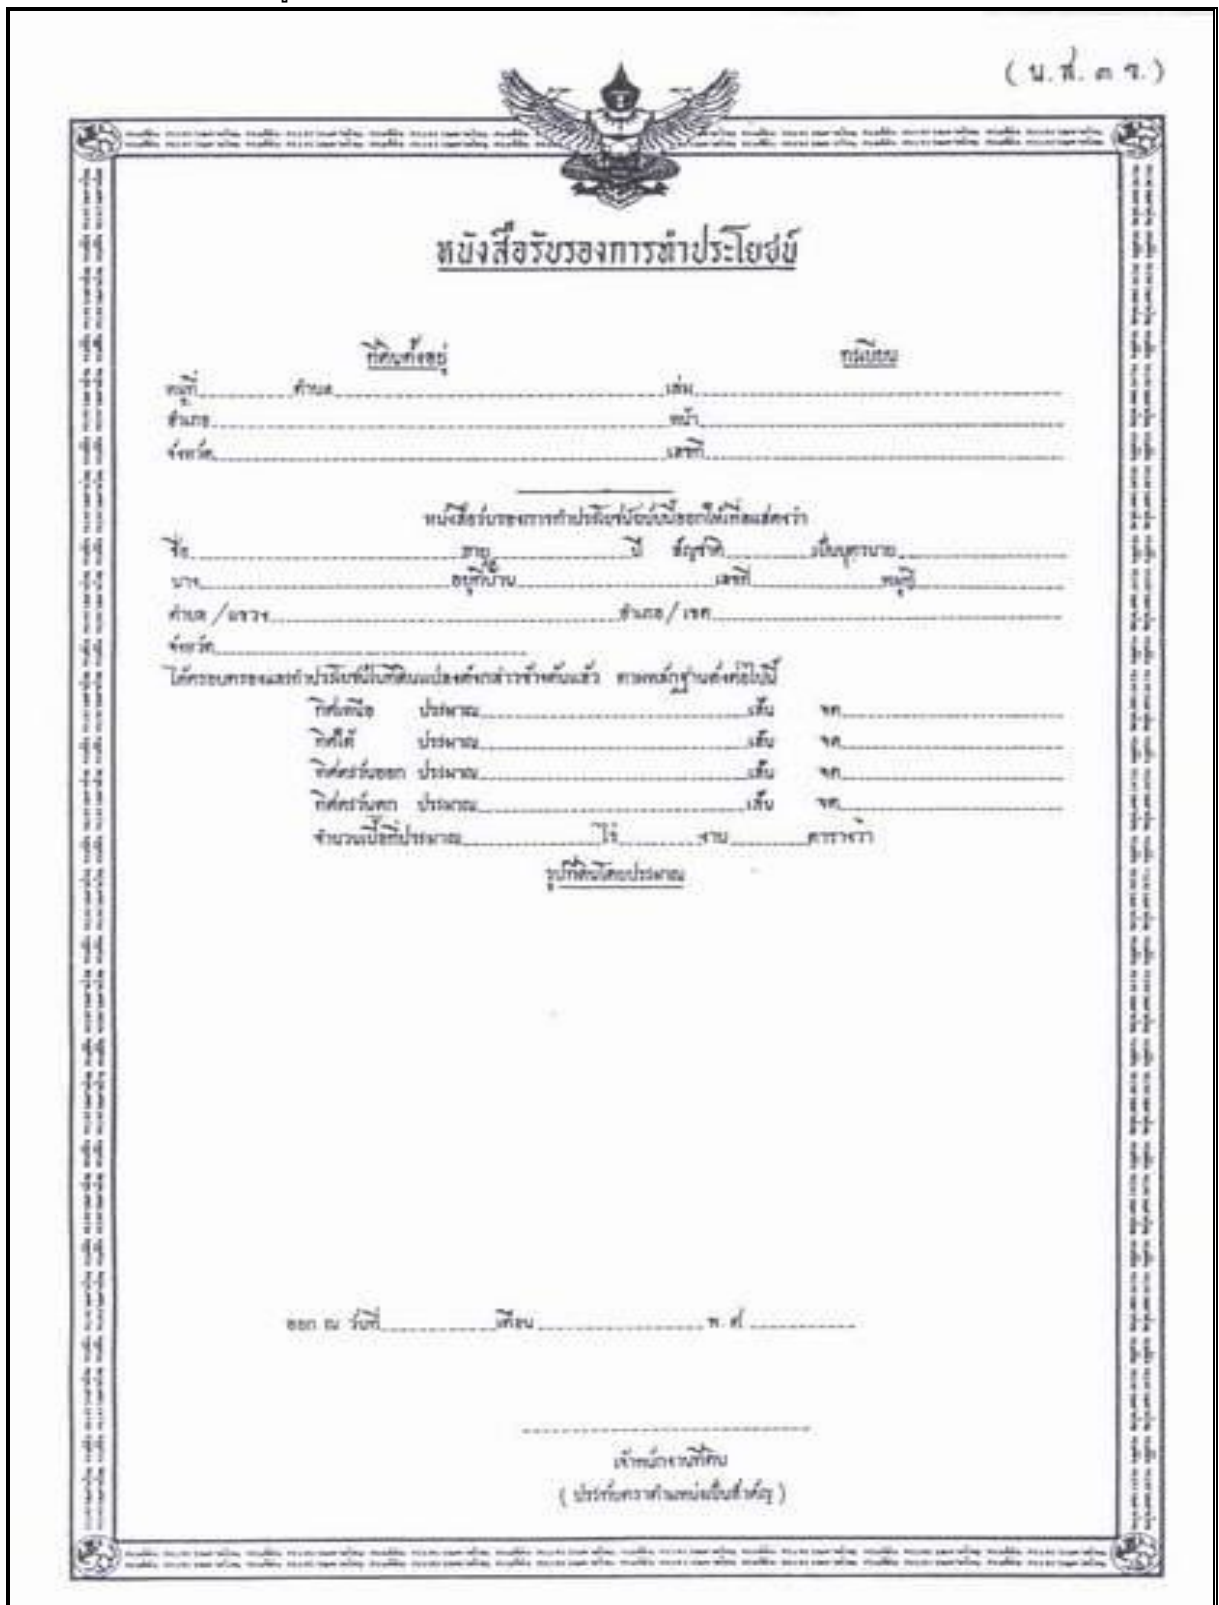 ( น.ส. ๓ ข.)
หนังสือรับรองการทำประโยชน์
ที่ดินตั้งอยู่ ทะเบียน
หมู่ที่ ตำบล เล่ม
อำเภอ หน้า
จังหวัด เลขที่
หนังสือรับรองการทำประโยชน์ฉบับนี้ออกให้เพื่อแสดงว่า
ชื่อ อายุ ปี สัญชาติ เป็นบุตรนาย
นาง อยู่ที่บ้าน เลขที่ หมู่ที่
ตำบล / แขวง อำเภอ / เขต
จังหวัด
ได้ครอบครองและทำประโยชน์ในที่ดินแปลงดังกล่าวข้างต้นแล้ว ตามหลักฐานดังต่อไปนี้
ทิศเหนือ ประมาณ เส้น จด
ทิศใต้ ประมาณ เส้น จด
ทิศตะวันออก ประมาณ เส้น จด
ทิศตะวันตก ประมาณ เส้น จด
จำนวนเนื้อที่ประมาณ ไร่ งาน ตารางวา
รูปที่ดินโดยประมาณ
ออก ณ วันที่ เดือน พ.ศ.
เจ้าพนักงานที่ดิน
( ประทับตราตำแหน่งเป็นสำคัญ )